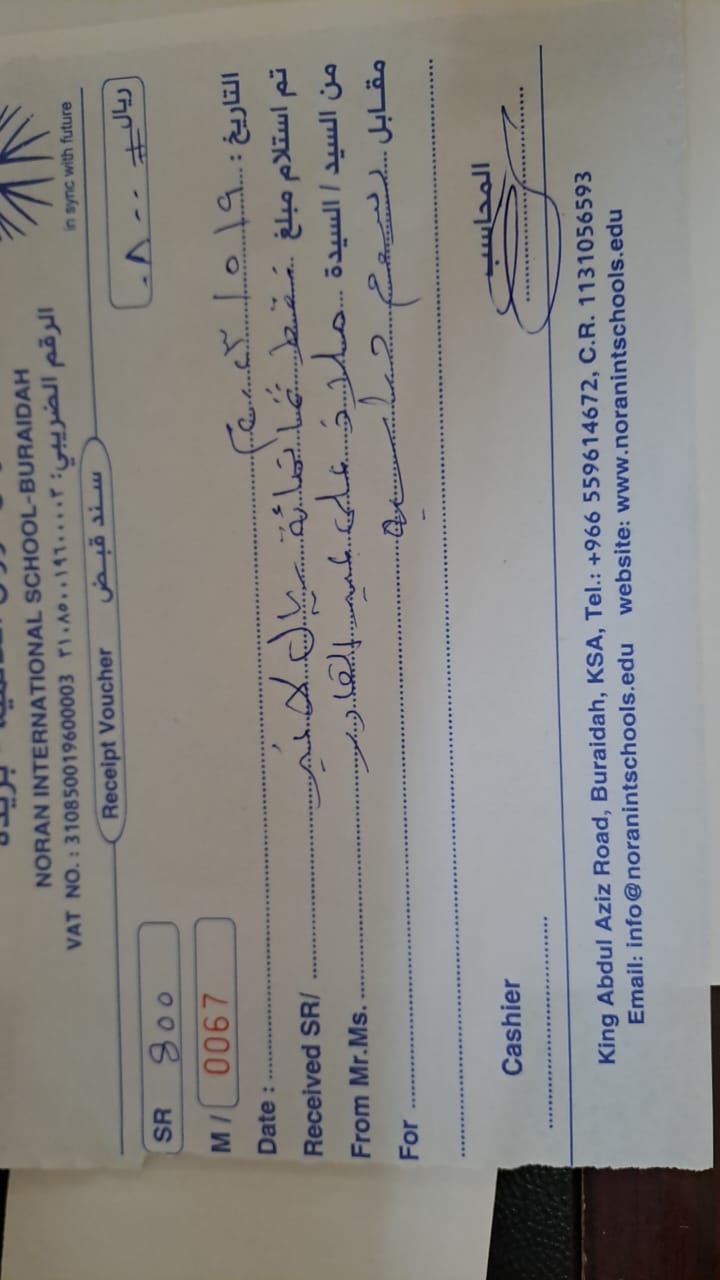 in sync with future
NORAN INTERNATIONAL SCHOOL-BURAIDAH
VAT NO. : 310850019600003 الرقم الضريبي: ٣١٠٨٥٠٠١٩٦٠٠٠٠٣
Receipt Voucher سند قبض
SR 800 ٨٠٠ # ريال
M / 0067
Date : التاريخ :
Received SR/ فقط ثمانمائة ريال لا غير تم استلام مبلغ
From Mr.Ms. على عبد القادر من السيد / السيدة
For رسوم مقابل
Cashier المحاسب
King Abdul Aziz Road, Buraidah, KSA, Tel.: +966 559614672, C.R. 1131056593
Email: info@noranintschools.edu website: www.noranintschools.edu